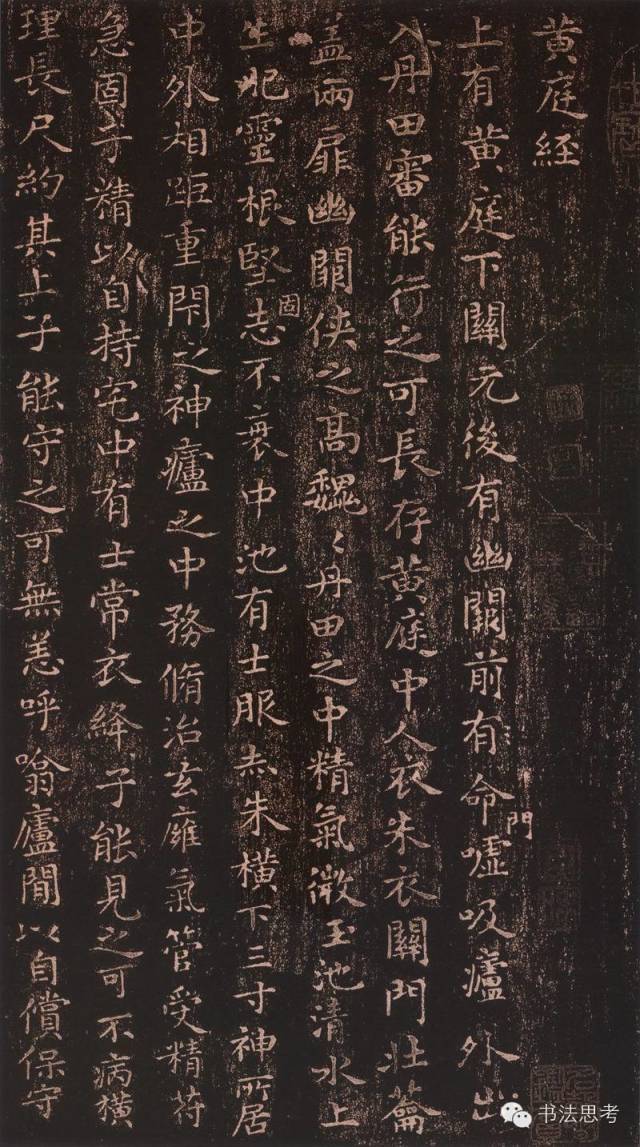 黄庭經
上有黄庭下關元後有幽闕前有命門噓吸廬外出
入丹田審能行之可長存黄庭中人衣朱衣關門壯蘥
盖兩扉幽闕俠之高巍〻丹田之中精氣微玉池清水上
生肥靈根堅固志不衰中池有士服赤朱橫下三寸神所居
中外相距重閇之神廬之中務脩治玄廱氣管受精符
急固子精以自持宅中有士常衣絳子能見之可不病橫
理長尺約其上子能守之可無恙呼噏廬間以自償保守
书法思考